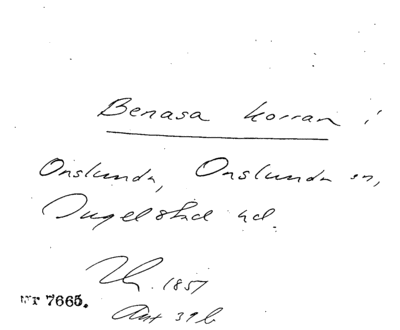 Benasa korran i
Onslunda, Onslunda sn,
Ingelstad hd.
1857
Nr 7665.
39 b